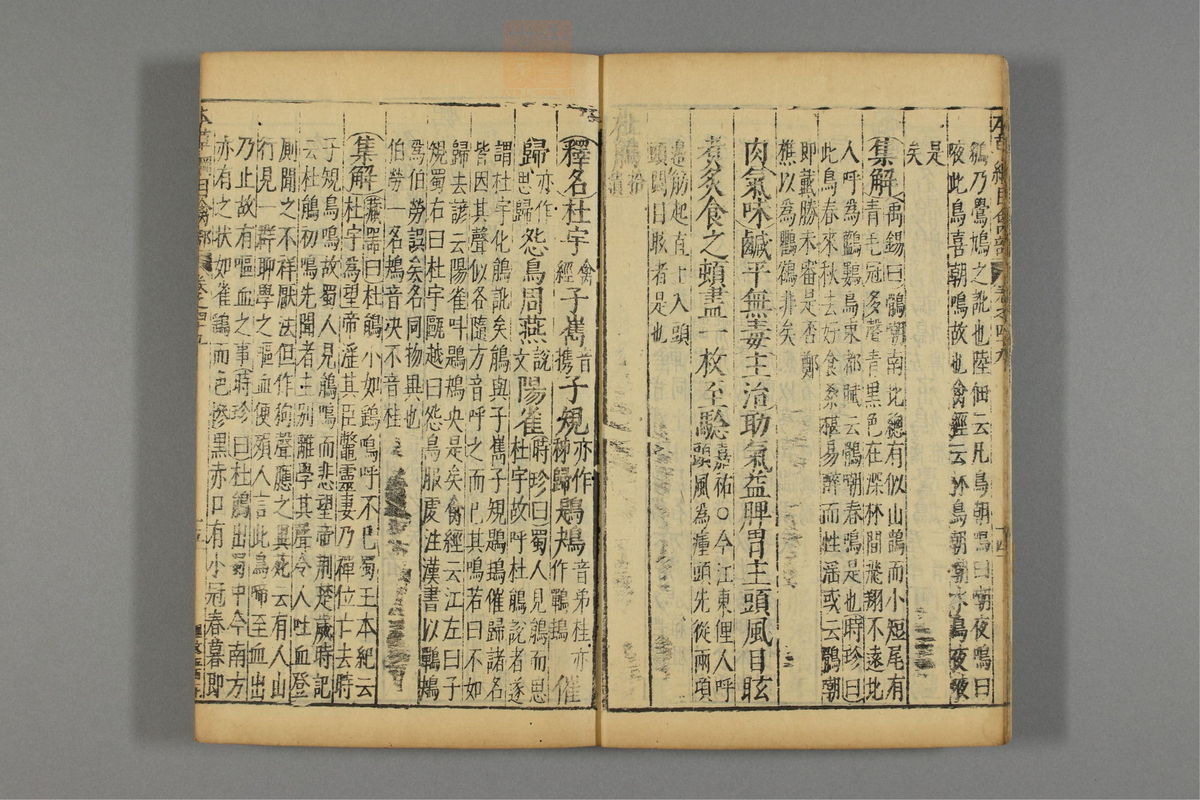 鵃乃鷽鳩之訛也陸佃云凡鳥朝鳴曰嘲夜鳴曰
㖡此鳥喜朝鳴故也禽經云林鳥朝嘲水鳥夜㖡
是矣
集解禹錫曰鶻嘲南北總有似山鵲而小短尾有
青毛冠多聲青黑色在深林間飛翔不遠北
人呼為鸜鵒鳥東都賦云鶻嘲春鳴是也時珍曰
此鳥春來秋去好食桑椹易醉而性淫或云鶻嘲
即戴勝未審是否鄭
樵以為鸜鵒非矣
肉氣味鹹平無毒主治助氣益脾胃主頭風目眩
煮炙食之頃盡一枚至驗嘉祐○今江東俚人呼
頭風為瘇頭先從兩項
邊筋起直上入頭
頭悶目眩者是也
杜鵑拾遺
釋名杜宇禽經子巂音攜子規亦作秭歸鶗鴂音弟桂亦作鷤鴂催
歸亦作思歸怨鳥周燕說文陽雀時珍曰蜀人見鵑而思
杜宇故呼杜鵑說者遂
謂杜宇化鵑訛矣鵑與子巂子規鶗鴂催歸諸名
皆因其聲似各隨方音呼之而已其鳴若曰不如
歸去諺云陽雀叫鶗鴂央是矣禽經云江左曰子
規蜀右曰杜宇甌越曰怨鳥服虔注漢書以鷤鴂
為伯勞誤矣名同物異也
伯勞一名鴂音決不音桂
集解藏器曰杜鵑小如鷂鳴呼不已蜀王本紀云
杜宇為望帝淫其臣鱉靈妻乃禪位亡去時
子規鳥鳴故蜀人見鵑鳴而悲望帝荆楚歲時記
云杜鵑初鳴先聞者主別離學其聲令人吐血登
厠聞之不祥厭法但作狗聲應之異苑云有人山
行見一群聊學之嘔血便殞人言此鳥啼至血出
乃止故有嘔血之事時珍曰杜鵑出蜀中今南方
亦有之狀如雀鷂而色慘黑赤口有小冠春暮即